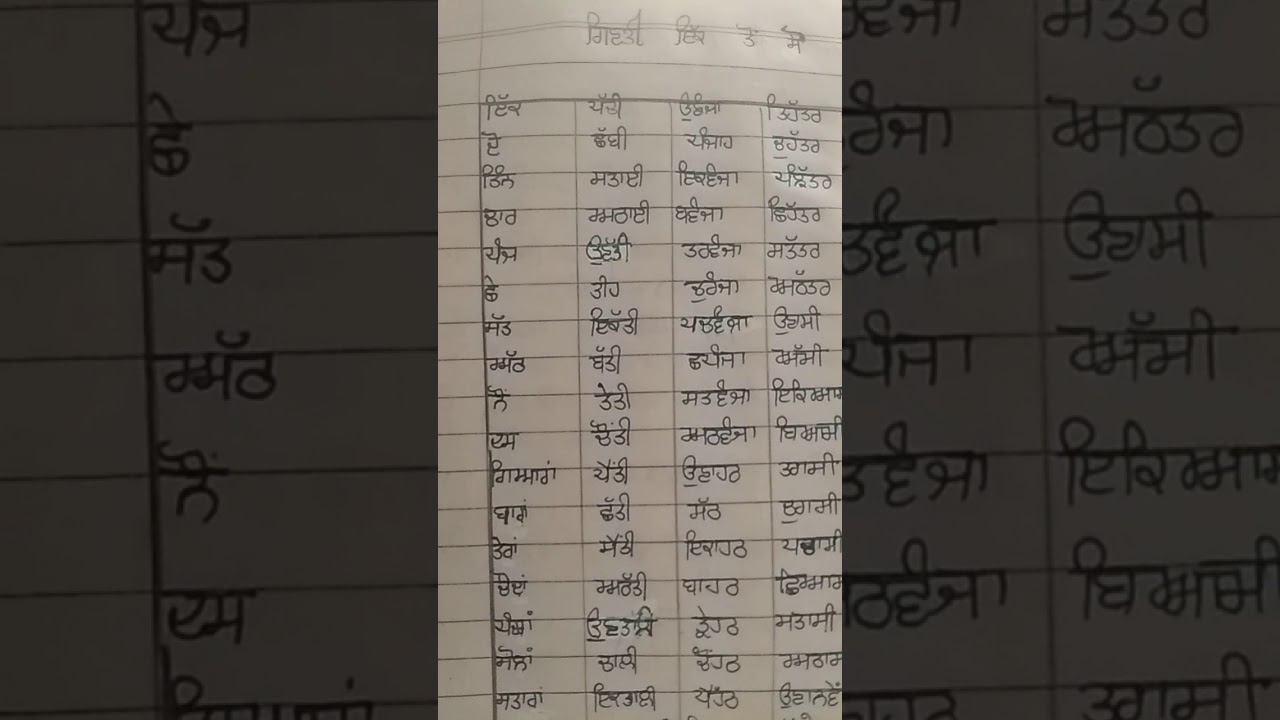 ਗਿਣਤੀ ਇੱਕ ਤੋਂ ਸੌ
ਇੱਕ ਪੱਚੀ ਉਨੰਜਾ ਤਿਹੱਤਰ
ਦੋ ਛੱਬੀ ਪੰਜਾਹ ਚੁਹੱਤਰ
ਤਿੰਨ ਸਤਾਈ ਇਕਵੰਜਾ ਪੰਝੱਤਰ
ਚਾਰ ਅਠਾਈ ਬਵੰਜਾ ਛਿਹੱਤਰ
ਪੰਜ ਉਣੱਤੀ ਤਰਵੰਜਾ ਸਤੱਤਰ
ਛੇ ਤੀਹ ਚੁਰੰਜਾ ਅਠੱਤਰ
ਸੱਤ ਇਕੱਤੀ ਪਚਵੰਜਾ ਉਣਾਸੀ
ਅੱਠ ਬੱਤੀ ਛਪੰਜਾ ਅੱਸੀ
ਨੌਂ ਤੇਤੀ ਸਤਵੰਜਾ ਇਕਿਆਸ
ਦਸ ਚੌਂਤੀ ਅਠਵੰਜਾ ਬਿਆਸੀ
ਗਿਆਰਾਂ ਪੈਂਤੀ ਉਣਾਹਠ ਤਰਾਸੀ
ਬਾਰਾਂ ਛੱਤੀ ਸੱਠ ਚੁਰਾਸੀ
ਤੇਰਾਂ ਸੈਂਤੀ ਇਕਾਹਠ ਪਚਾਸੀ
ਚੌਦਾਂ ਅਠੱਤੀ ਬਾਹਠ ਛਿਆਸ
ਪੰਦਰਾਂ ਉਣਤਾਲੀ ਤ੍ਰੇਹਠ ਸਤਾਸੀ
ਸੋਲਾਂ ਚਾਲੀ ਚੌਂਹਠ ਅਠਾਸ
ਸਤਾਰਾਂ ਇਕਤਾਲੀ ਪੈਂਹਠ ਉਣਾਨਵੇਂ